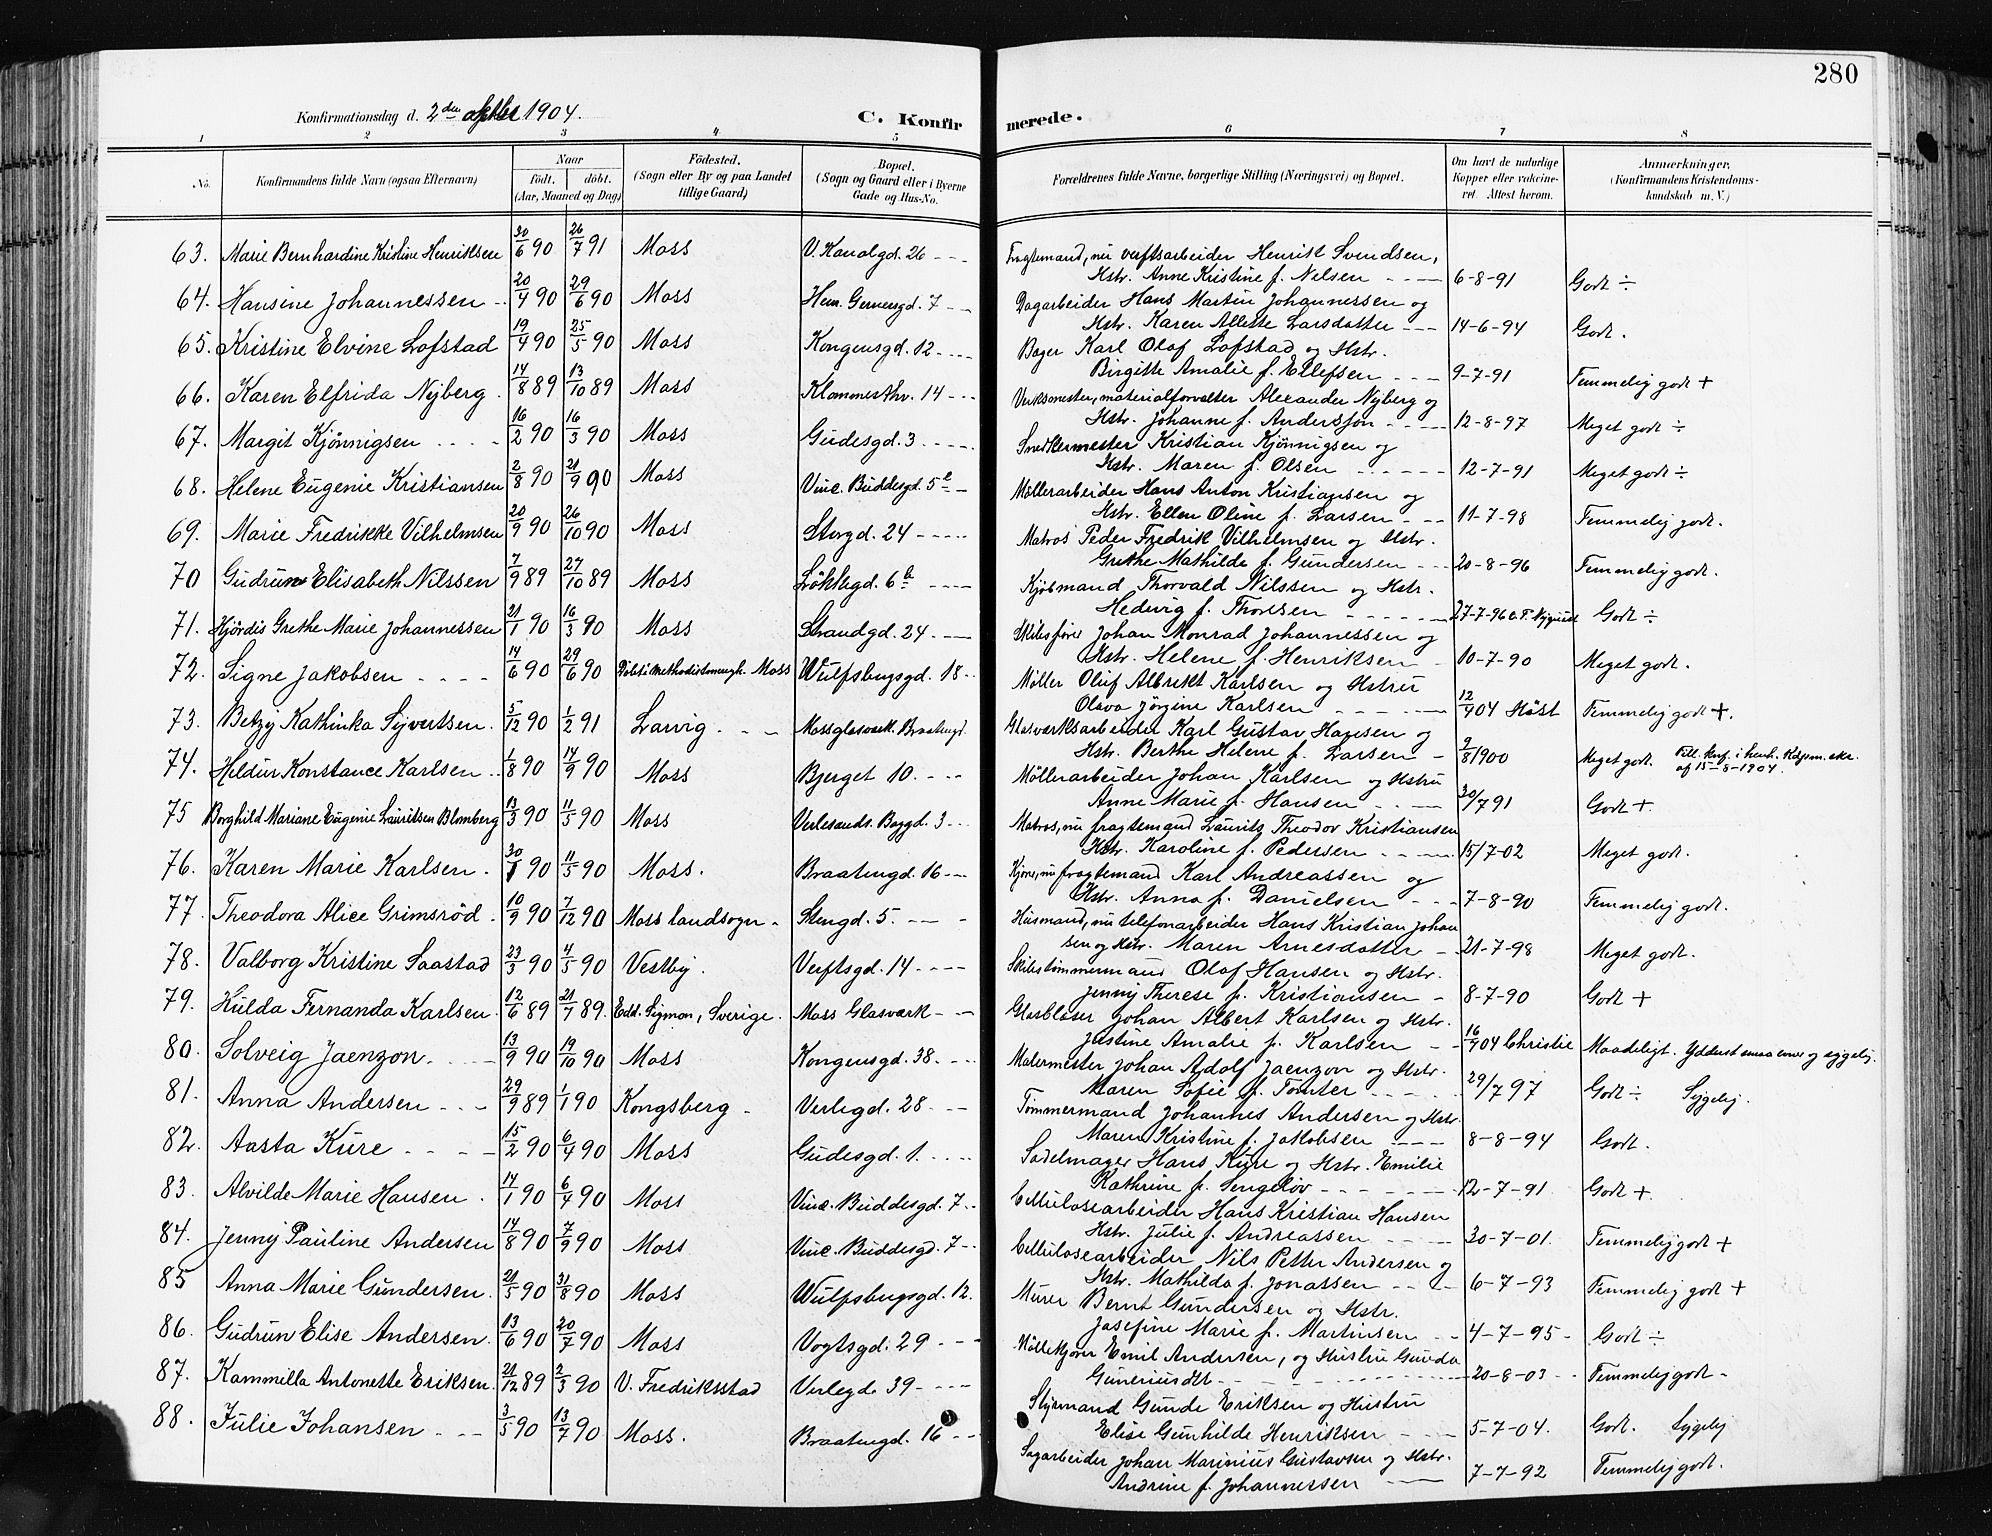 280
Konfirmationsdag d. 2den 1904.
C. Konfirmerede.
1 2 3 4 5 6 7 8
No. Konfirmandens fulde Navn (ogsaa Efternavn) Naar født. døbt. (Aar, Maaned og Dag) Fødested. (Sogn eller By og paa Landet tillige Gaard) Bopæl. (Sogn og Gaard eller i Byerne Gade og Hus-No. Forældrenes fulde Navne, borgerlige Stilling (Næringsvei) og Bopæl. Om havt de naturlige Kopper eller vakcineret. Attest herom. Anmærkninger. (Konfirmandens Kristendomskundskab m. V.)
63. Marie Bernhardine Kristine Henriksen 30/6 90 26/7 91 Moss V. Kanalgd. 26 Fragtemand, nu verftsarbeider Henrik Svendsen,
Hstr. Anne Kristine f. Nilsen 6-8-91 Godt ÷
64. Hansine Johannessen 20/4 90 29/6 90 Moss Hen. Gernersgd. 7 Dagarbeider Hans Martin Johannessen og
Hstr. Karen Allette Larsdatter 14-6-94 Godt.
65. Kristine Elvine Lofstad 19/4 90 25/5 90 Moss Kongensgd. 12 Bager Karl Olaf Lofstad og Hstr.
Birgitte Amalie f. Ellefsen 9-7-91 Temmelig godt +
66. Karen Elfrida Nyberg 14/8 89 13/10 89 Moss Klommesthv. 14 Verksmester, materialforvalter Alexander Nyberg og
Hstr. Johanne f. Andersson 12-8-97 Meget godt ÷
67. Margit Kjønnigsen 16/2 90 16/3 90 Moss Gudesgd. 3 Snedkermester Kristian Kjønnigsen og
Hstr. Maren f. Olsen 12-7-91 Meget godt ÷
68. Helene Eugenie Kristiansen 2/8 90 21/9 90 Moss Vinc. Buddesgd. 5 Møllerarbeider Hans Anton Kristiansen og
Hstr. Ellen Oline f. Larsen 11-7-98 Temmelig godt.
69. Marie Fredrikke Vilhelmsen 20/9 90 26/10 90 Moss Storgd. 24 Matros Peder Fredrik Vilhelmsen og Hstr.
Grethe Mathilde f. Gundersen 20-8-96 Temmelig godt.
70 Gudrun Elisabeth Nilssen 7/9 89 27/10 89 Moss Løkkegd. 6b Kjøbmand Thorvald Nilssen og Hstr.
Hedvig f. Thoresen 27-7-96 Godt ÷
71. Hjørdis Grethe Marie Johannessen 21/1 90 16/3 90 Moss Strandgd. 24 Skibsfører Johan Monrad Johannessen og
Hstr. Helene f. Henriksen 10-7-90 Meget godt.
72. Signe Jakobsen 14/6 90 29/6 90 Døbt i Methodistmengh. Moss Wulfsbergsgd. 18 Møller Oluf Albrekt Karlsen og Hstru
Olava Jørgine Karlsen 12/9 04 Høst Temmelig godt +.
73. Betzy Kathinka Syvertsen 5/12 90 1/2 91 Larvig Mossglasværk. Braatengd. Glasværksarbeider Karl Gustav Hansen og
Hstr. Berthe Helene f. Larsen 9/8 1900 Meget godt. Till. konf. i henh. Kdpsm. skr.
af 15-8-1904.
74. Heldur Konstance Karlsen 1/8 90 14/9 90 Moss Bjerget 10. Møllerarbeider Johan Karlsen og Hstru
Anne Marie f. Hansen 30/7 91 Godt +
75 Borghild Mariane Eugenie Lauritsen Blomberg 13/3 90 11/5 90 Moss Verlesands. Baggd. 3 Matros, nu fragtemand Laurits Theodor Kristiansen
Hstr. Karoline f. Pedersen 15/7-02 Meget godt.
76. Karen Marie Karlsen 30/1 90 11/5 90 Moss. Braatengd. 16 nu fragtemand Karl Andreassen og
Hstr. Anna f. Danielsen 7-8-90 Temmelig godt.
77. Theodora Alice Grimsrød 10/9 90 7/12 90 Moss landsogn Stengd. 5. Husmand, nu telefonarbeider Hans Kristian Johan
sen og Hstr. Maren Arnesdatter 21-7-98 Meget godt.
78. Valborg Kristine Saastad 23/3 90 4/5 90 Vestby. Verftsgd. 14 Skibstømmermand Olaf Hansen og Hstr.
Jenny Therese f. Kristiansen 8-7-90 Godt +
79. Hulda Fernanda Karlsen 12/6 89 21/7 89 Edd. Sigmon, Sverige. Moss Glasværk Glasblæser Johan Albert Karlsen og Hstr.
Justine Amalie f. Karlsen 16/9 04 Christie Maadeligt. Yderst smaa evner og sygelig.
80. Solveig Jaenzon 13/9 90 19/10 90 Moss Kongensgd. 38. Malermester Johan Adolf Jaenzon og Hstr.
Maren Sofie f. Tomter 29/7 97 Godt ÷ Sygelig.
81. Anna Andersen 29/9 89 1/1 90 Kongsberg Verlegd. 28 Tømmermand Johannes Andersen og Hstr.
Maren Kristine f. Jakobsen 8-8-94 Godt.
82. Aasta Kure 15/2 90 6/4 90 Moss Gudesgd. 1. Sadelmager Hans Kure og Hstr. Emilie
Kathrine f. Lengeløv 12-7-91 Godt +
83. Alvilde Marie Hansen 14/1 90 6/4 90 Moss Vinc. Buddesgd. 7 Cellulosearbeider Hans Kristian Hansen
Hstr. Julie f. Andreassen 30-7-01. Temmelig godt +
84. Jenny Pauline Andersen 14/8 90 7/9 90 Moss Vinc. Buddesgd. 7 Cellulosearbeider Nils Petter Andersen og
Hstr. Mathilda f. Jonassen 6-7-93 Temmelig godt +
85 Anna Marie Gundersen 21/5 90 31/8 90 Moss Wulfsbergsgd. 12. Murer Bernt Gundersen og Hstr.
Josefine Marie f. Martinsen 4-7-95 Godt ÷
86. Gudrun Elise Andersen 13/6 90 20/7 90 Moss Vogtsgd. 29 Møllekjører Emil Andersen, og Hustru Gunda
Guneriusdt. 20-8-03 Temmelig godt
87. Kammilla Antonette Eriksen 21/12 89 2/3 90 V. Fredriksstad Verlegd. 39 Styrmand Gunde Eriksen og Hustru
Elise Gunhilde Henriksen 5-7-04. Godt. Sygelig
88. Julie Johansen 3/5 90 13/7 90 Moss. Braatengd. 16 Sagarbeider Johan Marinius Gustavsen og Hstr.
Andrine f. Johannessen 7-7-92 Temmelig godt.